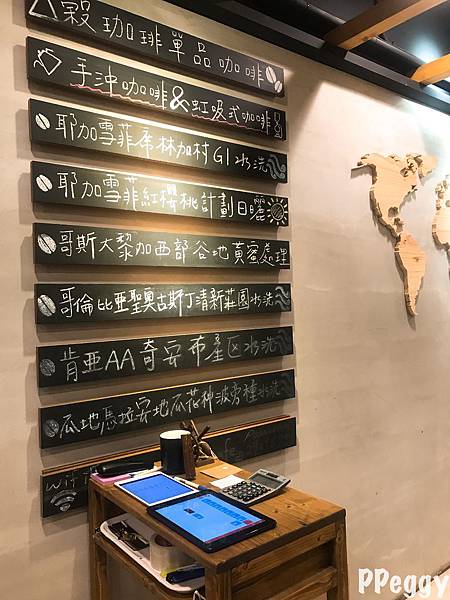 穀珈琲單品咖啡
手沖咖啡&虹吸式咖啡
耶加雪菲希林加村G1水洗
耶加雪菲紅櫻桃計劃日曬
哥斯大黎加西部谷地黃蜜處理
哥倫比亞聖奧古斯丁清新莊園水洗
肯亞AA奇安布產区水洗
瓜地馬拉安地瓜花神波旁種水洗
wifi
PPeggy